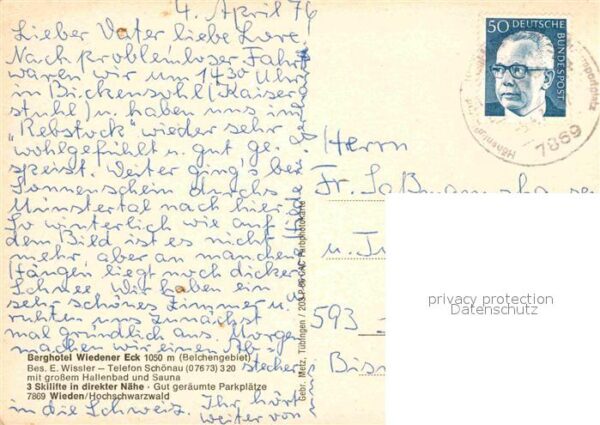 4. April 76
Lieber Vater liebe Lore.
Nach problemloser Fahrt
waren wir um 1430 Uhr
in Bickensohl (Kaiser
stuhl) u. haben uns im
"Rebstock" wieder sehr
wohlgefühlt u. gut ge-
speist. Weiter ging's bei
Sonnenschein durchs
Münstertal nach hier.
So winterlich wie auf
dem Bild ist es nicht
mehr aber an manchen
Hängen liegt noch dicker
Schnee. Wir haben ein
sehr schönes Zimmer u.
ruhten uns zunächst
mal gründlich aus. Morgen
machen wir einen Ab-
stecher
in die Schweiz. Ihr hört
weiter von
Berghotel Wiedener Eck 1050 m (Belchengebiet)
Bes. E. Wissler – Telefon Schönau (07673) 320
mit großem Hallenbad und Sauna
3 Skilifte in direkter Nähe · Gut geräumte Parkplätze
7869 Wieden/Hochschwarzwald
Gebr. Metz, Tübingen
Farbphotokarte
50 DEUTSCHE
BUNDESPOST
7869
Herrn
Fr.
u.
593
privacy protection
Datenschutz